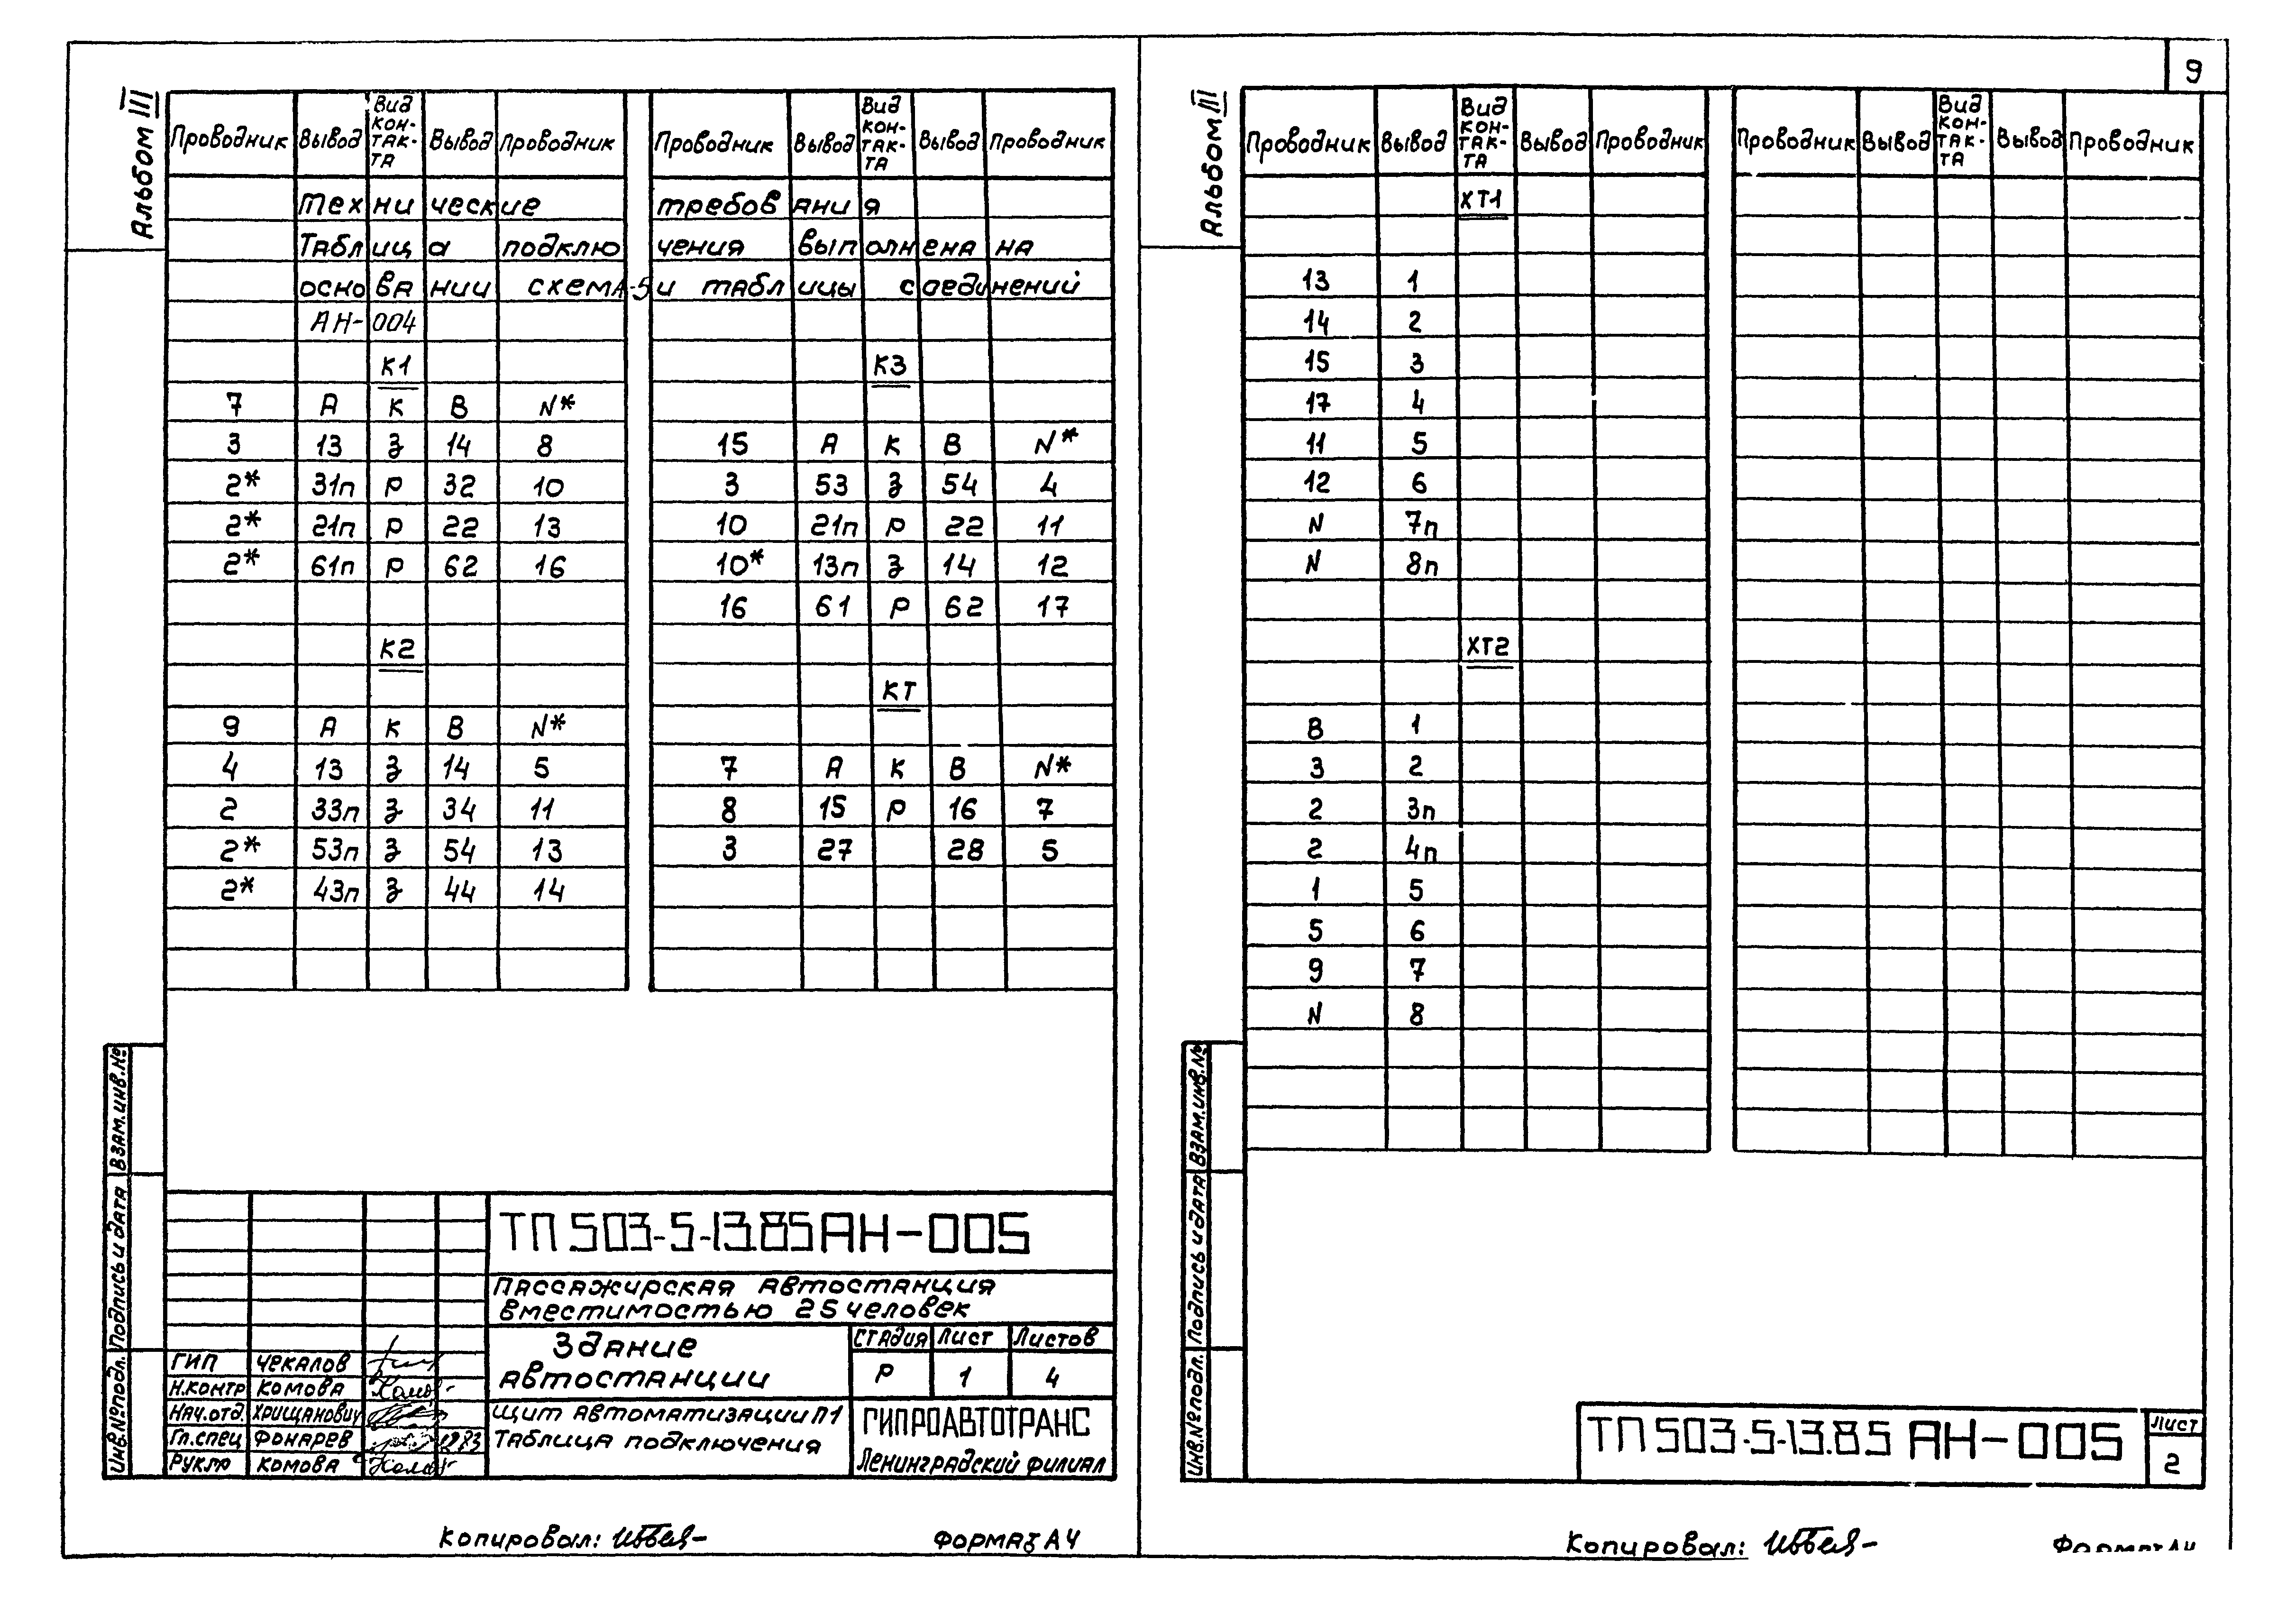 9
Альбом III
Проводник Вывод Вид кон-так-та Вывод Проводник
Проводник Вывод Вид кон-так-та Вывод Проводник
Технические требования
Таблица подключения выполнена на
основании схема-5 и таблицы соединений
АН-004
К1
7 А К В N*
3 13 З 14 8
2* 31п Р 32 10
2* 21п Р 22 13
2* 61п Р 62 16
К2
9 А К В N*
4 13 З 14 5
2 33п З 34 11
2* 53п З 54 13
2* 43п З 44 14
К3
15 А К В N*
3 53 З 54 4
10 21п Р 22 11
10* 13п З 14 12
16 61 Р 62 17
КТ
7 А К В N*
8 15 Р 16 7
3 27 28 5
Взам.инв.№
Подпись и дата
Инв.№подл.
ТП 503-5-13.85 АН-005
Пассажирская автостанция
вместимостью 25 человек
Здание
автостанции
Стадия Лист Листов
Р 1 4
Щит автоматизации П1
Таблица подключения
ГИПРОАВТОТРАНС
Ленинградский филиал
ГИП Чекалов
Н.контр Комова
Нач.отд. Хрищанович
Гл.спец Фонарев 12.83
Рук.гр Комова
Копировал:
Формат А4
Альбом III
Проводник Вывод Вид кон-так-та Вывод Проводник
Проводник Вывод Вид кон-так-та Вывод Проводник
ХТ1
13 1
14 2
15 3
17 4
11 5
12 6
N 7п
N 8п
ХТ2
8 1
3 2
2 3п
2 4п
1 5
5 6
9 7
N 8
Взам.инв.№
Подпись и дата
Инв.№подл.
ТП 503-5-13.85 АН-005
Лист
2
Копировал:
Формат А4